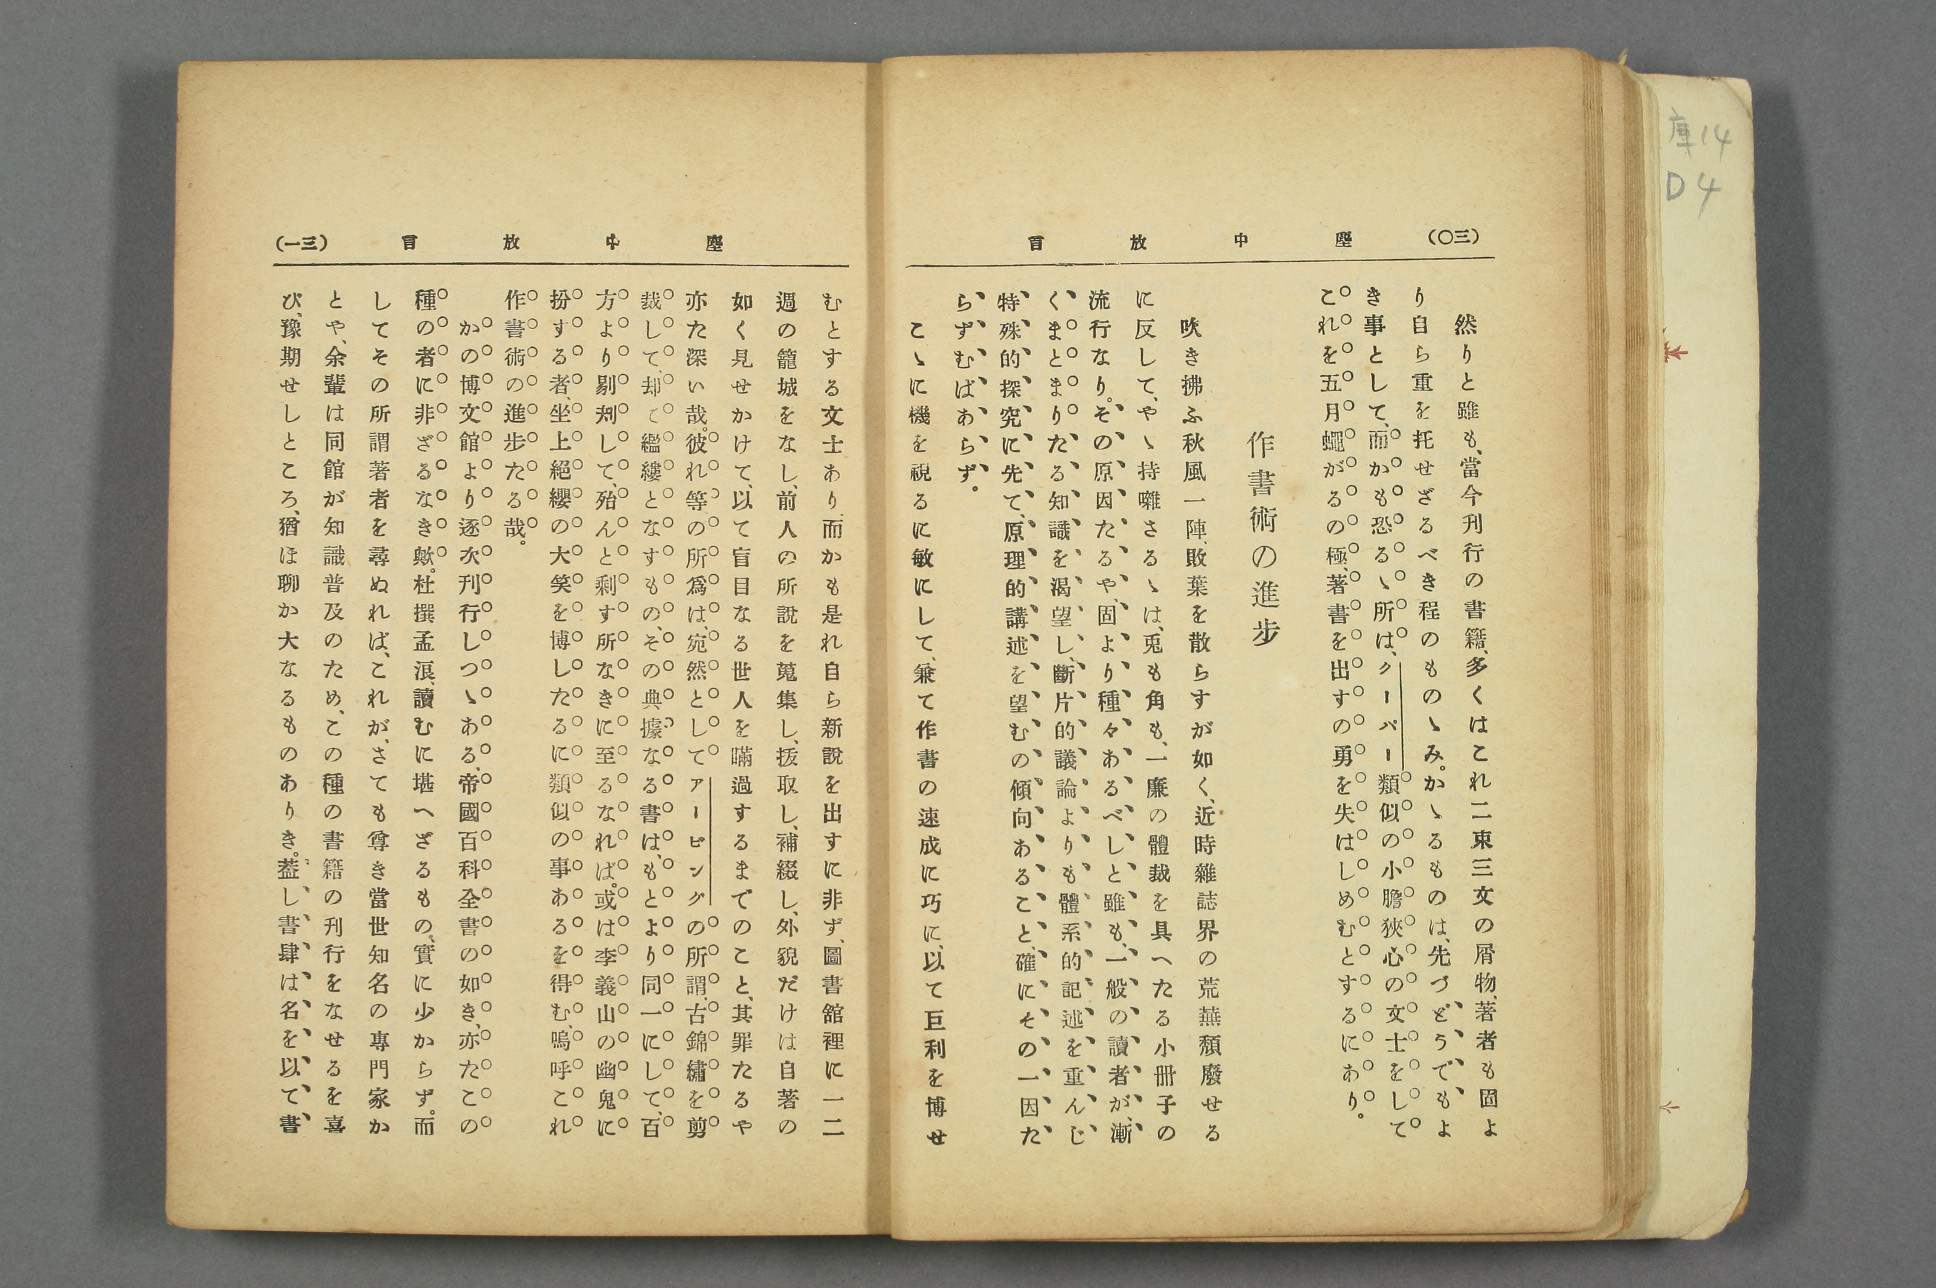 庫14
D4
(三〇)　塵中放言
然りと雖も、當今刊行の書籍、多くはこれ二束三文の屑物、著者も固よ
り自ら重を托せざるべき程のものゝみ。かゝるものは、先づどうでもよ
き事として、而かも恐るゝ所は、クーパー類似の小膽狹心の文士をして
これを五月蠅がるの極、著書を出すの勇を失はしめむとするにあり。
作書術の進步
吹き拂ふ秋風一陣、敗葉を散らすが如く、近時雜誌界の荒蕪頽廢せる
に反して、やゝ持囃さるゝは、兎も角も、一廉の體裁を具へたる小册子の
流行なり。その原因たるや、固より種々あるべしと雖も、一般の讀者が、漸
くまとまりたる知識を渴望し、斷片的議論よりも體系的記述を重んじ
特殊的探究に先て、原理的講述を望むの傾向あること、確にその一因た
らずむばあらず。
こゝに機を視るに敏にして、兼て作書の速成に巧に、以て巨利を博せ
塵中放言　(三一)
むとする文士あり、而かも是れ自ら新說を出すに非ず、圖書舘裡に一二
週の籠城をなし、前人の所說を蒐集し、拔取し、補綴し、外貌だけは自著の
如く見せかけて、以て盲目なる世人を瞞過するまでのこと、其罪たるや
亦た深い哉。彼れ等の所爲は、宛然としてアービングの所謂、古錦繡を剪
裁して、却て襤褸となすもの、その典據なる書は、もとより同一にして、百
方より剔刔して、殆んと剩す所なきに至るなれば。或は李義山の幽鬼に
扮する者、坐上絕纓の大笑を博したるに類似の事あるを得む、嗚呼これ
作書術の進步たる哉。
かの博文館より逐次刊行しつゝある、帝國百科全書の如き、亦たこの
種の者に非ざるなき歟。杜撰孟浪、讀むに堪へざるもの、實に少からず。而
してその所謂著者を尋ぬれば、これが、さても尊き當世知名の專門家か
とや、余輩は同館が知識普及のため、この種の書籍の刊行をなせるを喜
び、豫期せしところ、猶ほ聊か大なるものありき。葢し、書肆は名を以て、書